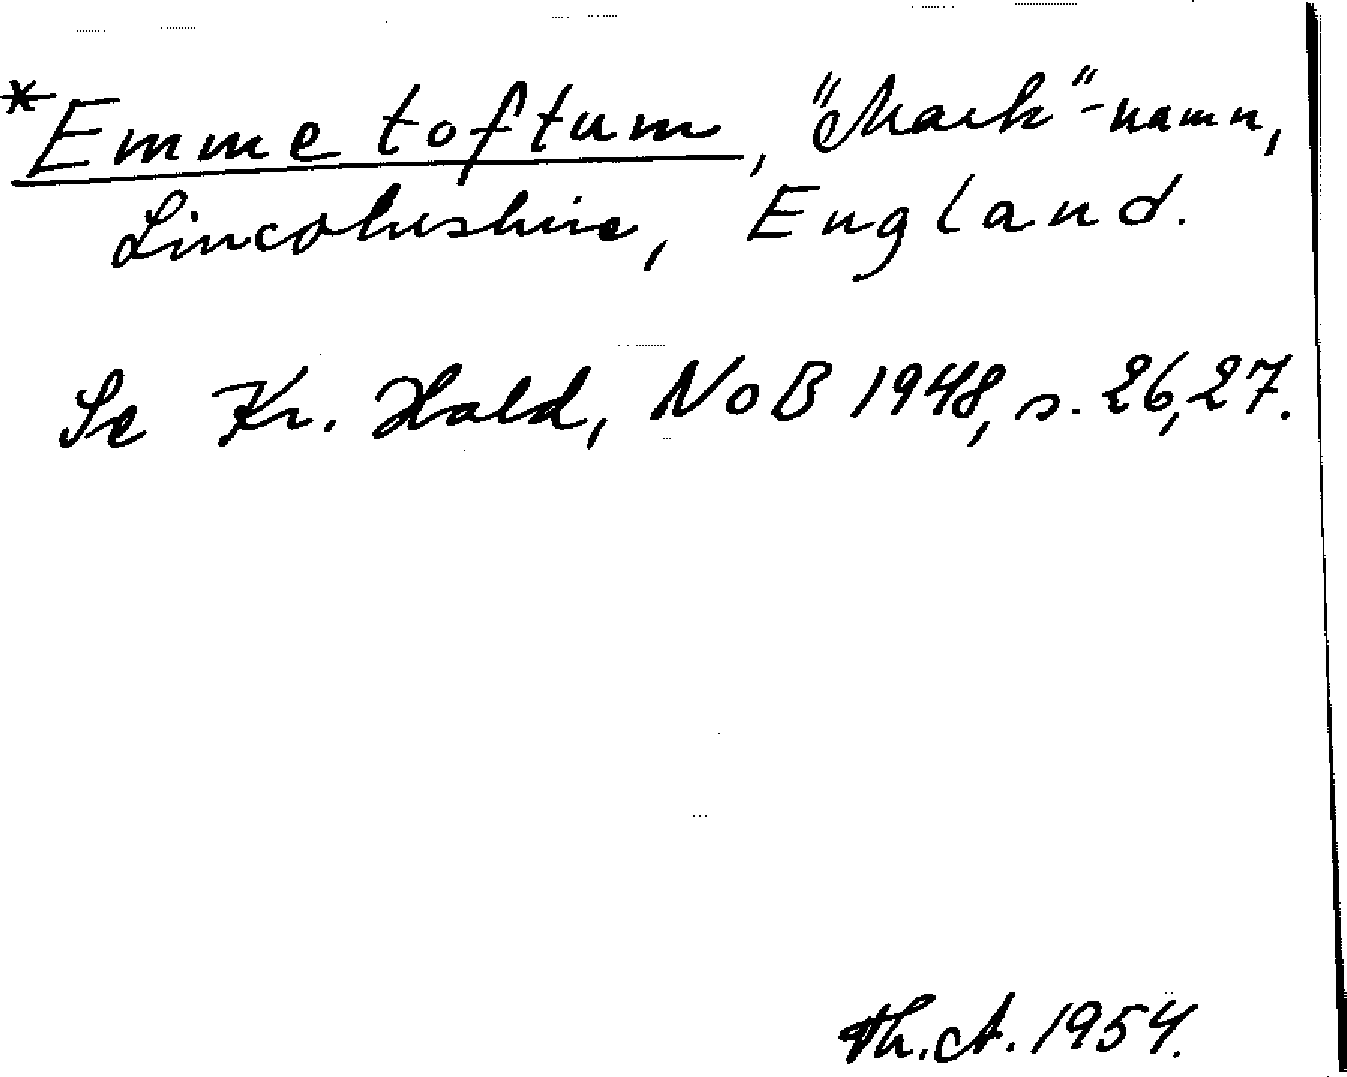 *Emmetoftum, "Mark"-namn,
Lincolnshire, England.
Se Kr. Hald, NoB 1948, s. 26, 27.
Th. A. 1954.